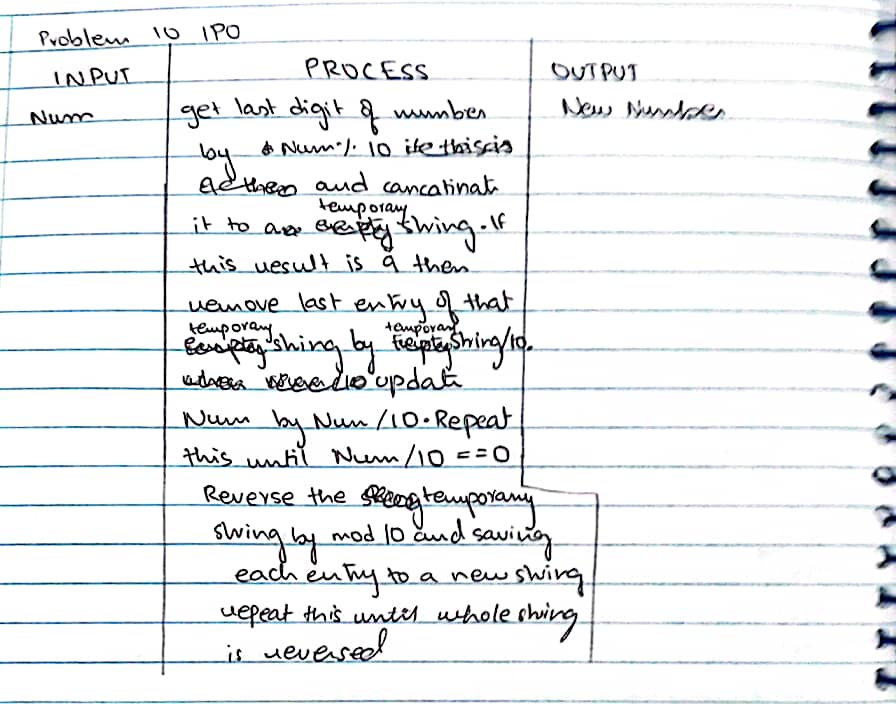 Problem 10 IPO
INPUT PROCESS OUTPUT
Num get last digit of number New Number
by Num % 10
and cancatinate
temporary
it to a string. If
this result is 9 then
remove last entry of that
temporary temporary
string by string/10.
update
Num by Num/10. Repeat
this until Num/10 ==0
Reverse the temporary
string by mod 10 and saving
each entry to a new string
repeat this until whole string
is reversed